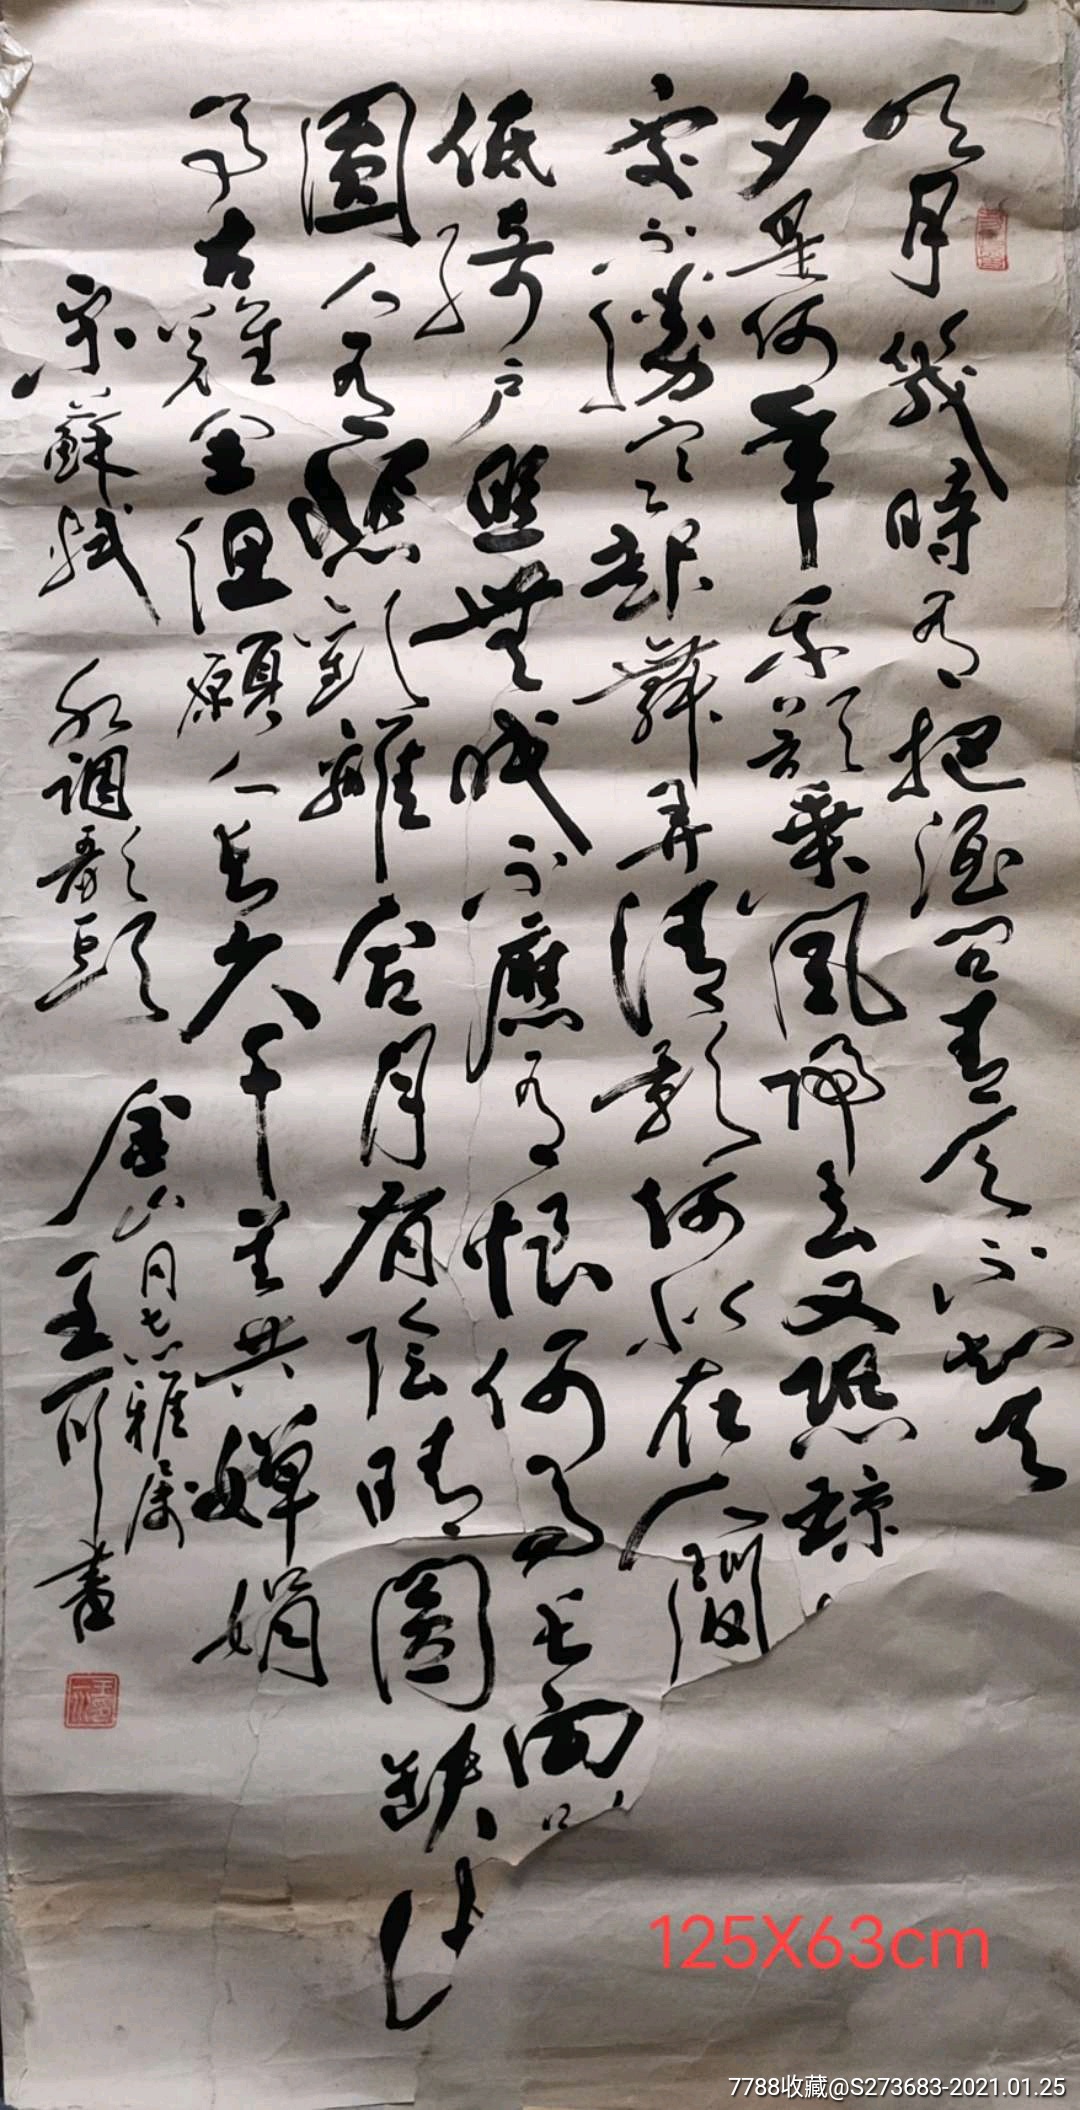 明月幾時有把酒问青天不知天
夕是何年我欲乘風歸去又恐琼
處不勝寒起舞弄清影何似在人間
低綺户照無眠不應有恨何事長向
圓人有悲歡離合月有陰晴圓缺此
事古難全但願人長久千里共嬋娟
宋蘇軾 水調歌頭
金山同志雅属
王 書
125X63cm
7788收藏@S273683-2021.01.25